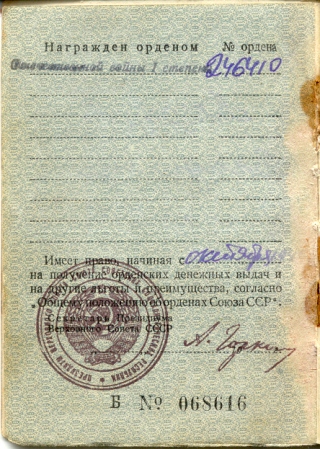 Награжден орденом № ордена
Отечественной войны I степени 246410
Имеет право, начиная с октября
на получение орденских денежных выдач и
на другие льготы и преимущества, согласно
„Общему положению об орденах Союза ССР“.
Секретарь Президиума
Верховного Совета СССР
А. Горкин
Б № 068616